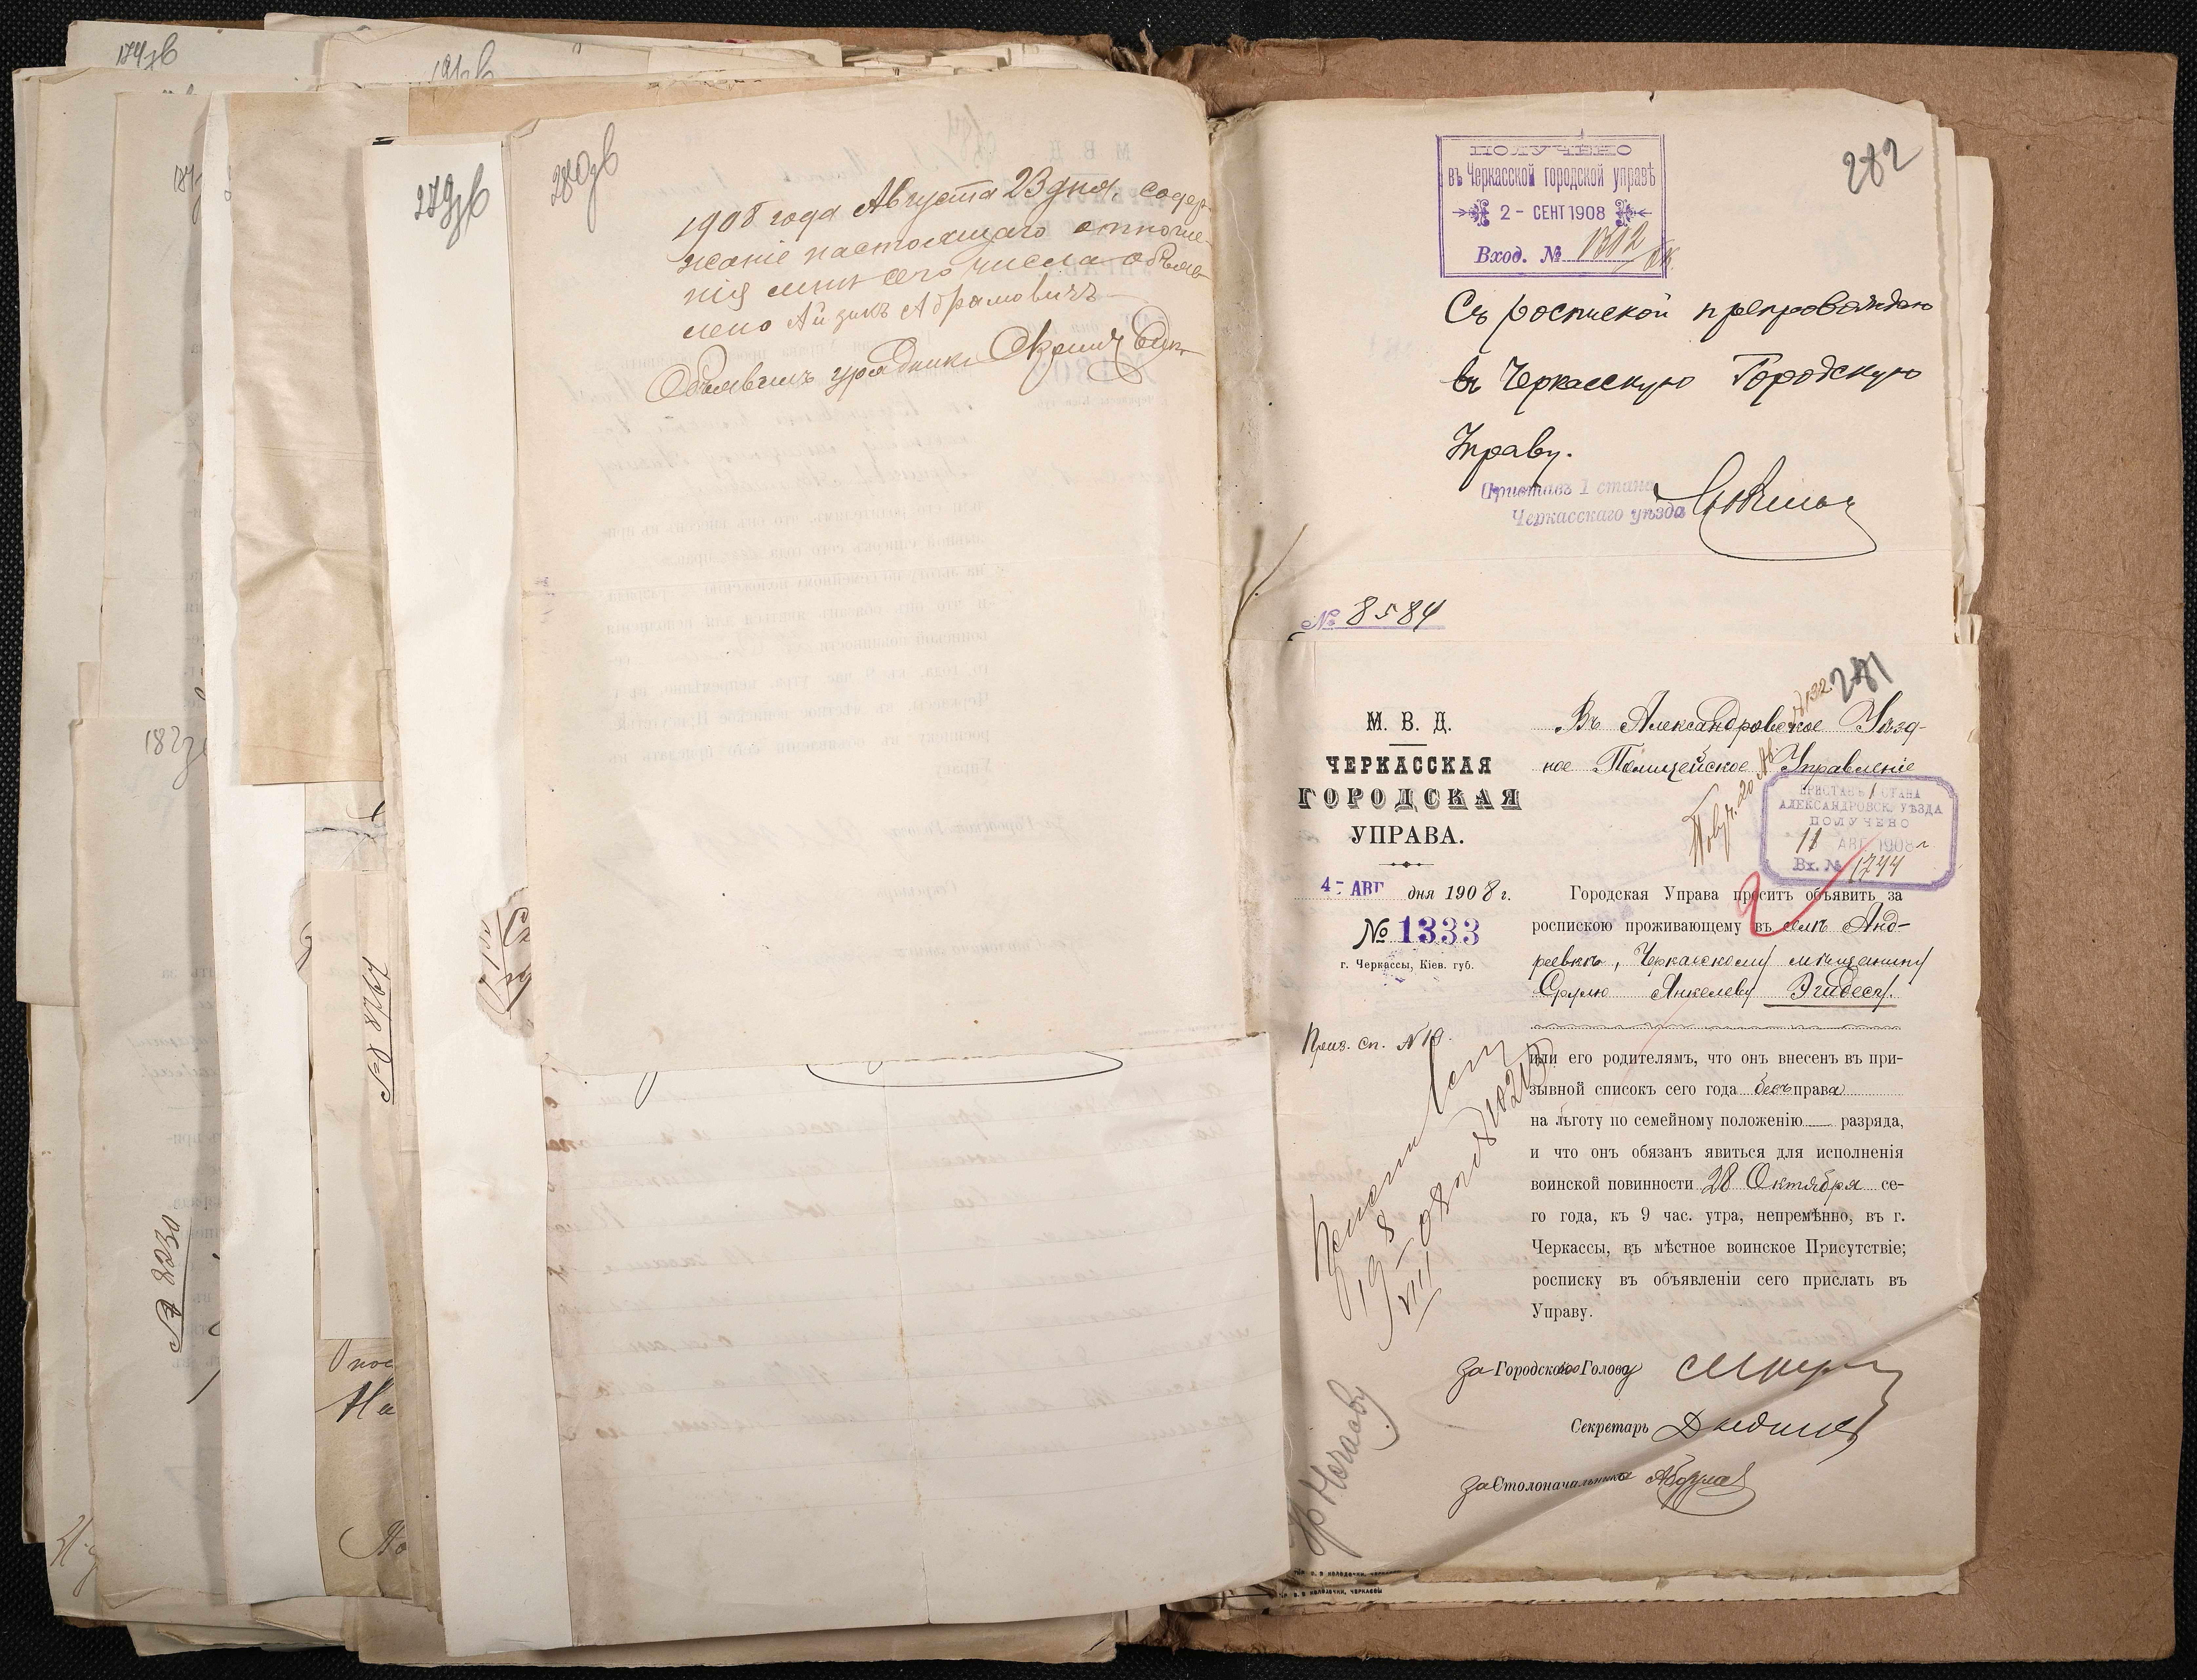 174зв
191зв
187зв
№ 8230
№ 8764
279зв
280зв
1908 года Августа 23 дня. содер-
жаніе настоящаго отноше-
нія мнѣ сего числа объяв-
лено Айзикъ Абрамовичъ
Объявилъ урядникъ
282
ПОЛУЧЕНО
въ Черкасской городской управѣ
2 - СЕНТ 1908
Вход. № 1302
Съ роспиской препровождаю
въ Черкасскую Городскую
Управу.
Приставъ 1 стана
Черкасскаго уѣзда
№ 8584
281
М. В. Д.
ЧЕРКАССКАЯ
ГОРОДСКАЯ
УПРАВА.
4- АВГ дня 1908 г.
№ 1333
г. Черкассы, Кіев. губ.
Приз. сп. № 19.
Въ Александровское Уѣзд-
ное Полицейское Управленіе
ПРИСТАВЪ 1 СТАНА
АЛЕКСАНДРОВСК. УѢЗДА
ПОЛУЧЕНО
11 АВГ 1908 г
Вх. № 1744
Городская Управа проситъ объявить за
роспискою проживающему въ селѣ Анд-
реевкѣ, Черкасскому мѣщанину
Срулю Янкелеву Эгидесу.
или его родителямъ, что онъ внесенъ въ при-
зывной списокъ сего года безъ права
на льготу по семейному положенію — разряда,
и что онъ обязанъ явиться для исполненія
воинской повинности 28 Октября се-
го года, къ 9 час. утра, непремѣнно, въ г.
Черкассы, въ мѣстное воинское Присутствіе;
росписку въ объявленіи сего прислать въ
Управу.
за Городского Голову
Секретарь
за Столоначальника